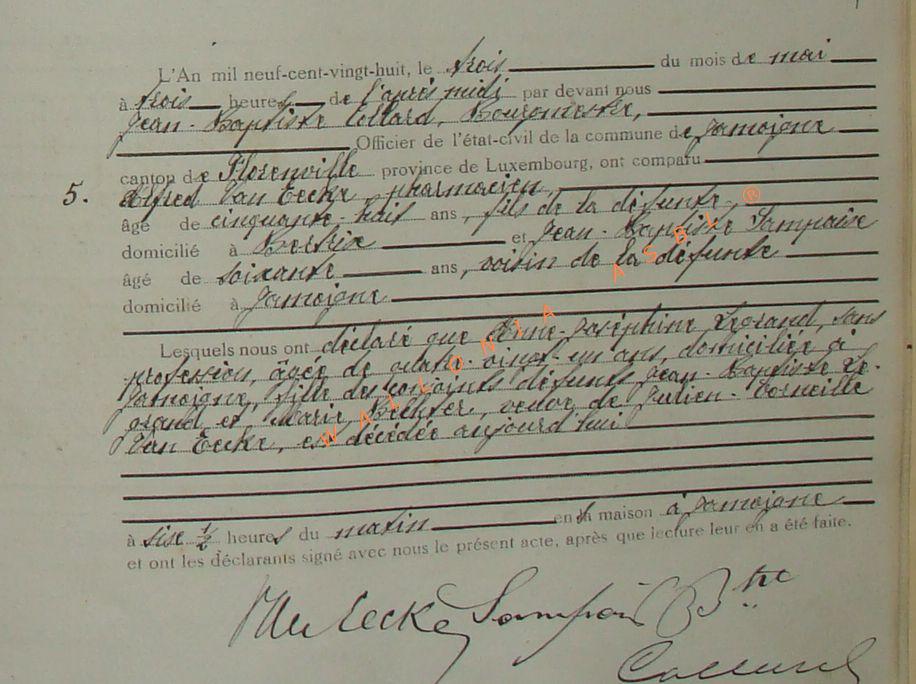 L'An mil neuf-cent-vingt-huit, le trois du mois de mai
à trois heures de l'après midi par devant nous
Jean-Baptiste Collard, Bourgmestre,
Officier de l'état-civil de la commune de Jamoigne
canton de Florenville province de Luxembourg, ont comparu
5. Alfred Van Eecke, pharmacien,
âgé de cinquante-huit ans, fils de la défunte,
domicilié à Bertrix et Jean-Baptiste Sampaix
âgé de soixante ans, voisin de la défunte
domicilié à Jamoigne
Lesquels nous ont déclaré que Anne-Joséphine Legrand, sans
profession, âgée de quatre-vingt-un ans, domiciliée à
Jamoigne, fille des conjoints défunts Jean-Baptiste Le-
grand et Marie, veuve de Julien-Corneille
Van Eecke, est décédée aujourd'hui
à six ½ heures du matin en sa maison à Jamoigne
et ont les déclarants signé avec nous le présent acte, après que lecture leur en a été faite.
Van Eecke Sampaix JBte
Collard
WALLONIA ASBL ®